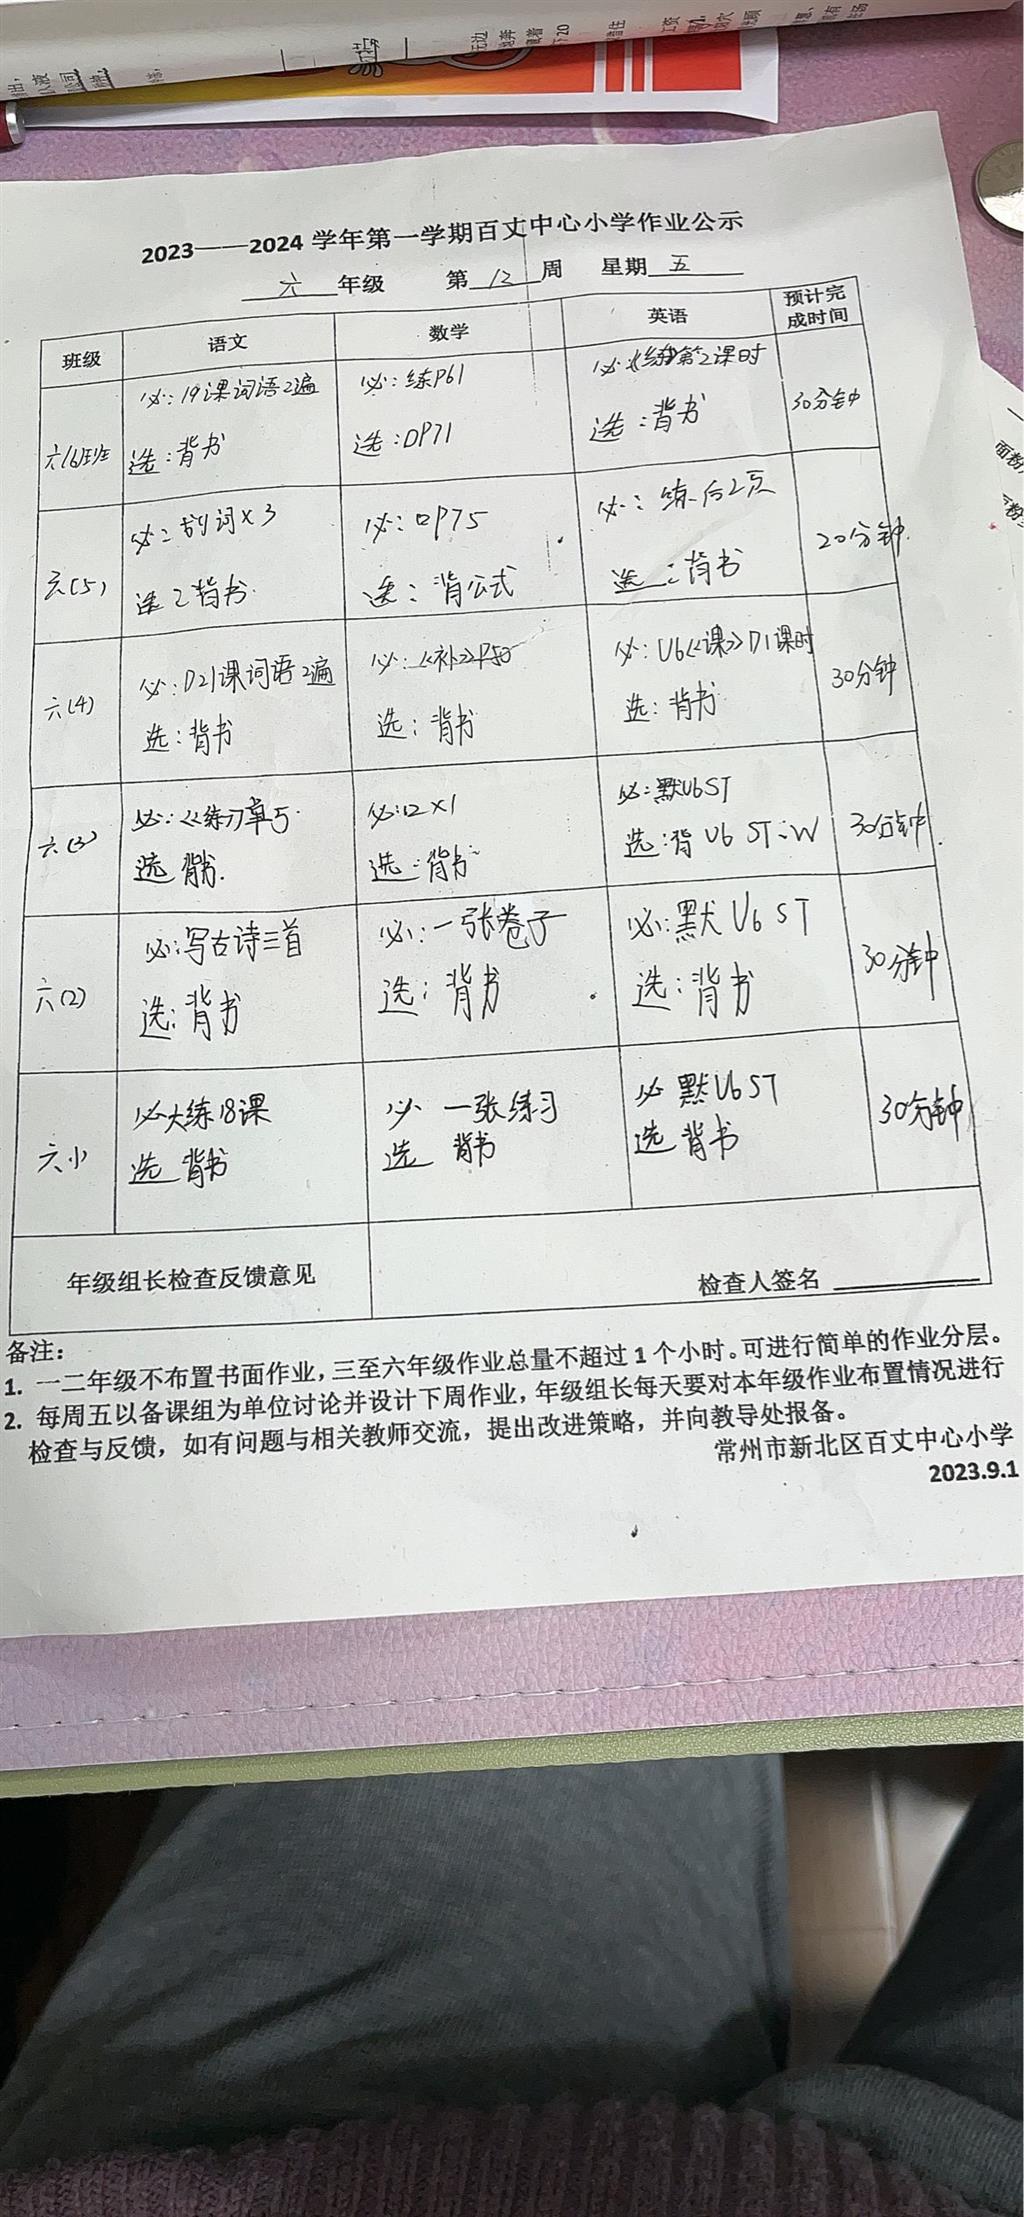 2023——2024 学年第一学期百丈中心小学作业公示
六 年级 第 12 周 星期 五
班级 语文 数学 英语 预计完成时间
六(6)班 必:19课词语2遍 必:练P61 必:《练》第2课时 30分钟
选:背书 选:口P71 选:背书
六(5) 必:词×3 必:口P75 必:练后2页 20分钟
选:背书 选:背公式 选:背书
六(4) 必:D21课词语2遍 必:《补》P50 必:U6《课》D1课时 30分钟
选:背书 选:背书 选:背书
六(3) 必:《练习单5 必:口2×1 必:默U6ST 30分钟
选 背书. 选:背书 选:背U6 ST:W
六(2) 必:写古诗三首 必:一张卷子 必:默U6 ST 30分钟
选:背书 选:背书 选:背书
六 必大练18课 必 一张练习 必 默U6ST 30分钟
选 背书 选 背书 选 背书
年级组长检查反馈意见 检查人签名
备注:
1. 一二年级不布置书面作业,三至六年级作业总量不超过1个小时。可进行简单的作业分层。
2. 每周五以备课组为单位讨论并设计下周作业,年级组长每天要对本年级作业布置情况进行
检查与反馈,如有问题与相关教师交流,提出改进策略,并向教导处报备。
常州市新北区百丈中心小学
2023.9.1